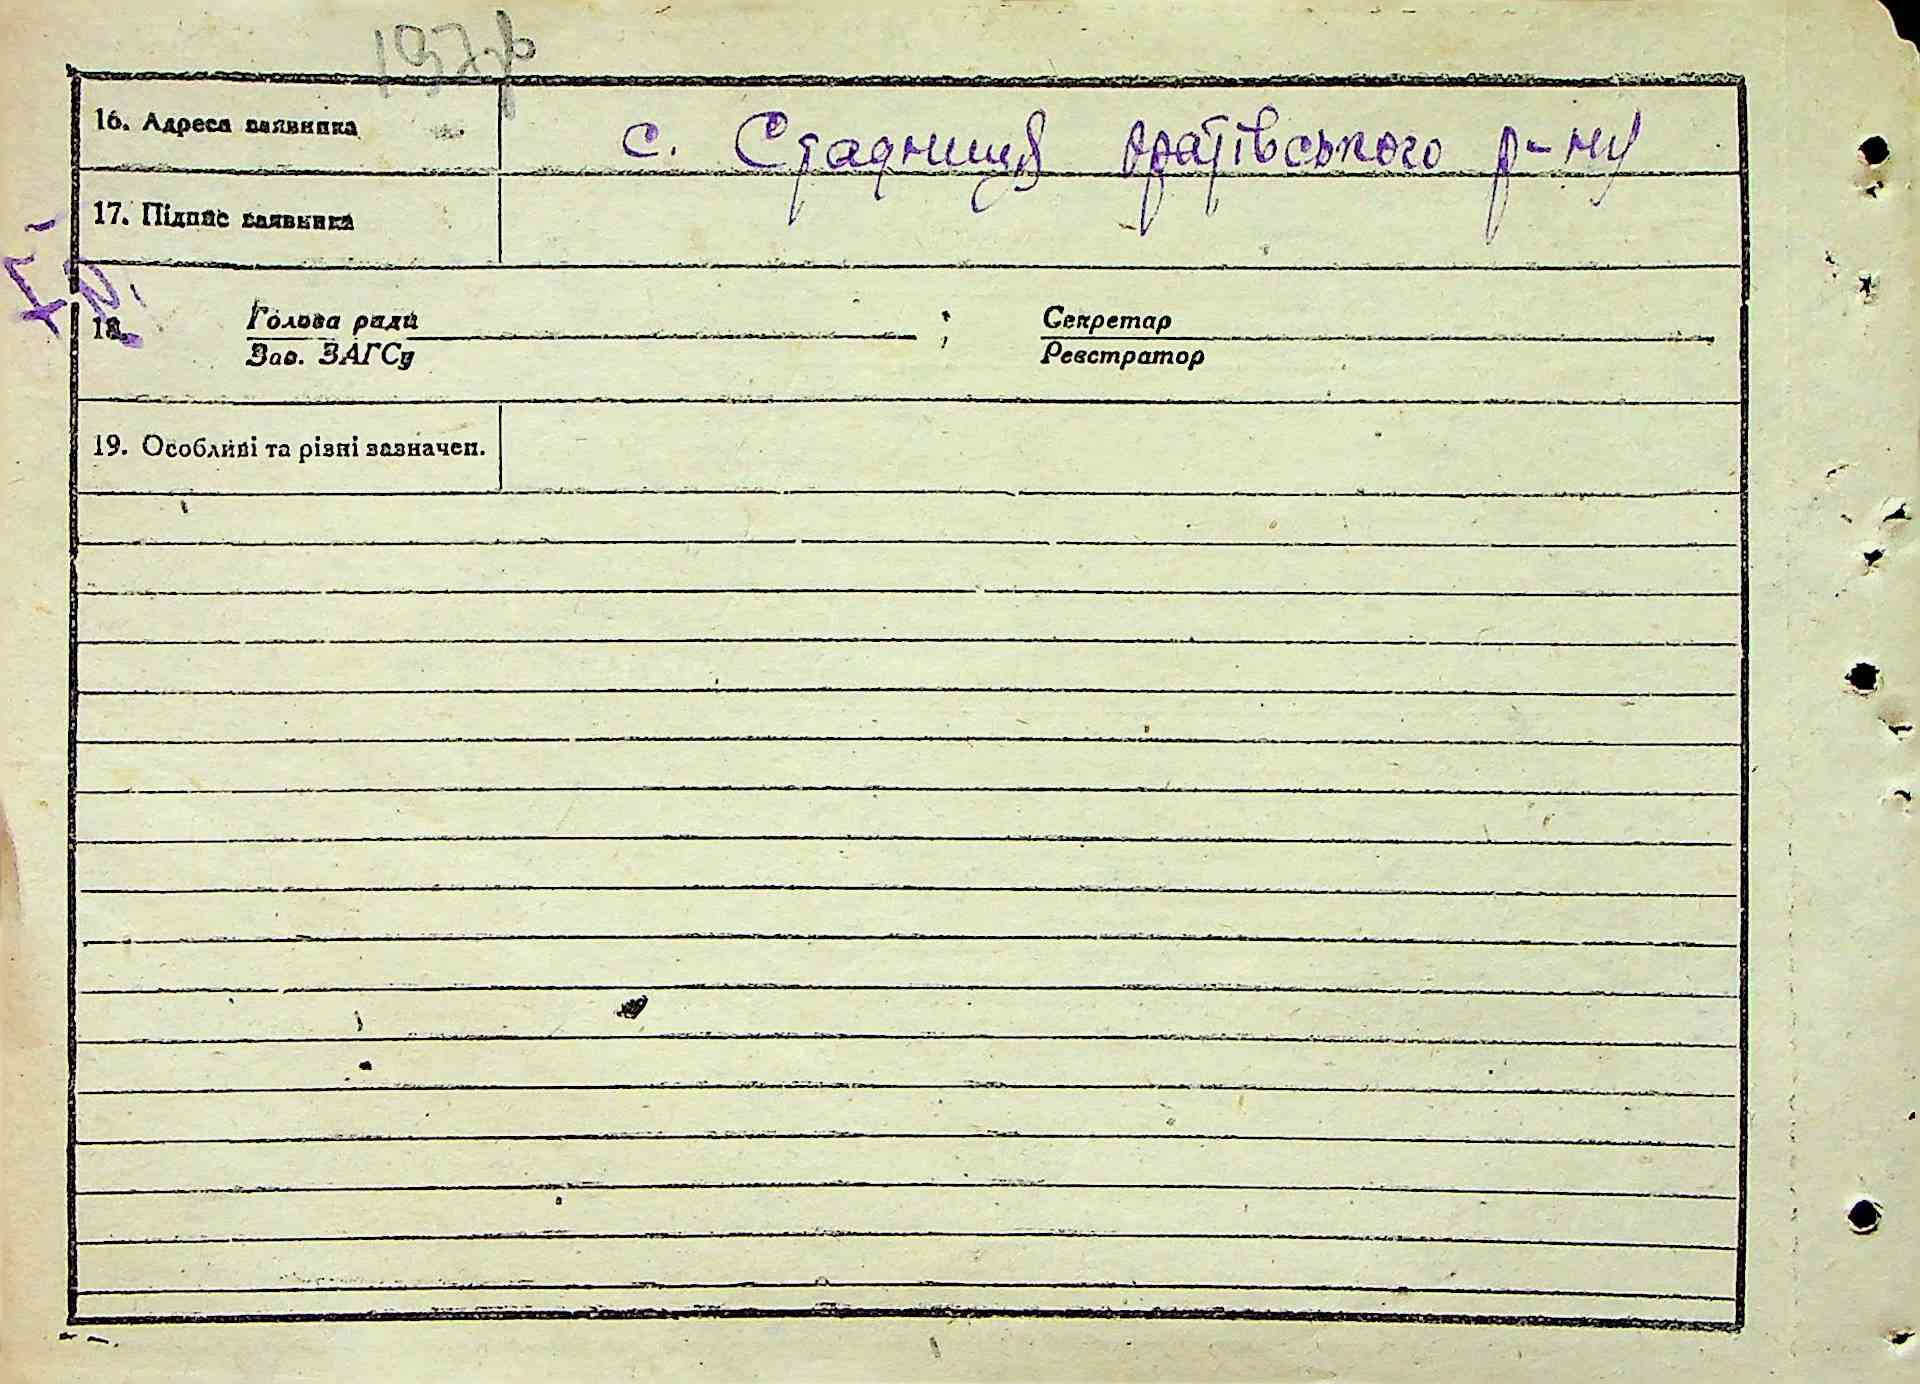 16. Адреса заявника
с. Стадниця Оратівського р-ну
17. Підпис заявника
18. Голова ради ; Секретар
Зав. ЗАГСу Реєстратор
19. Особливі та різні зазначен.